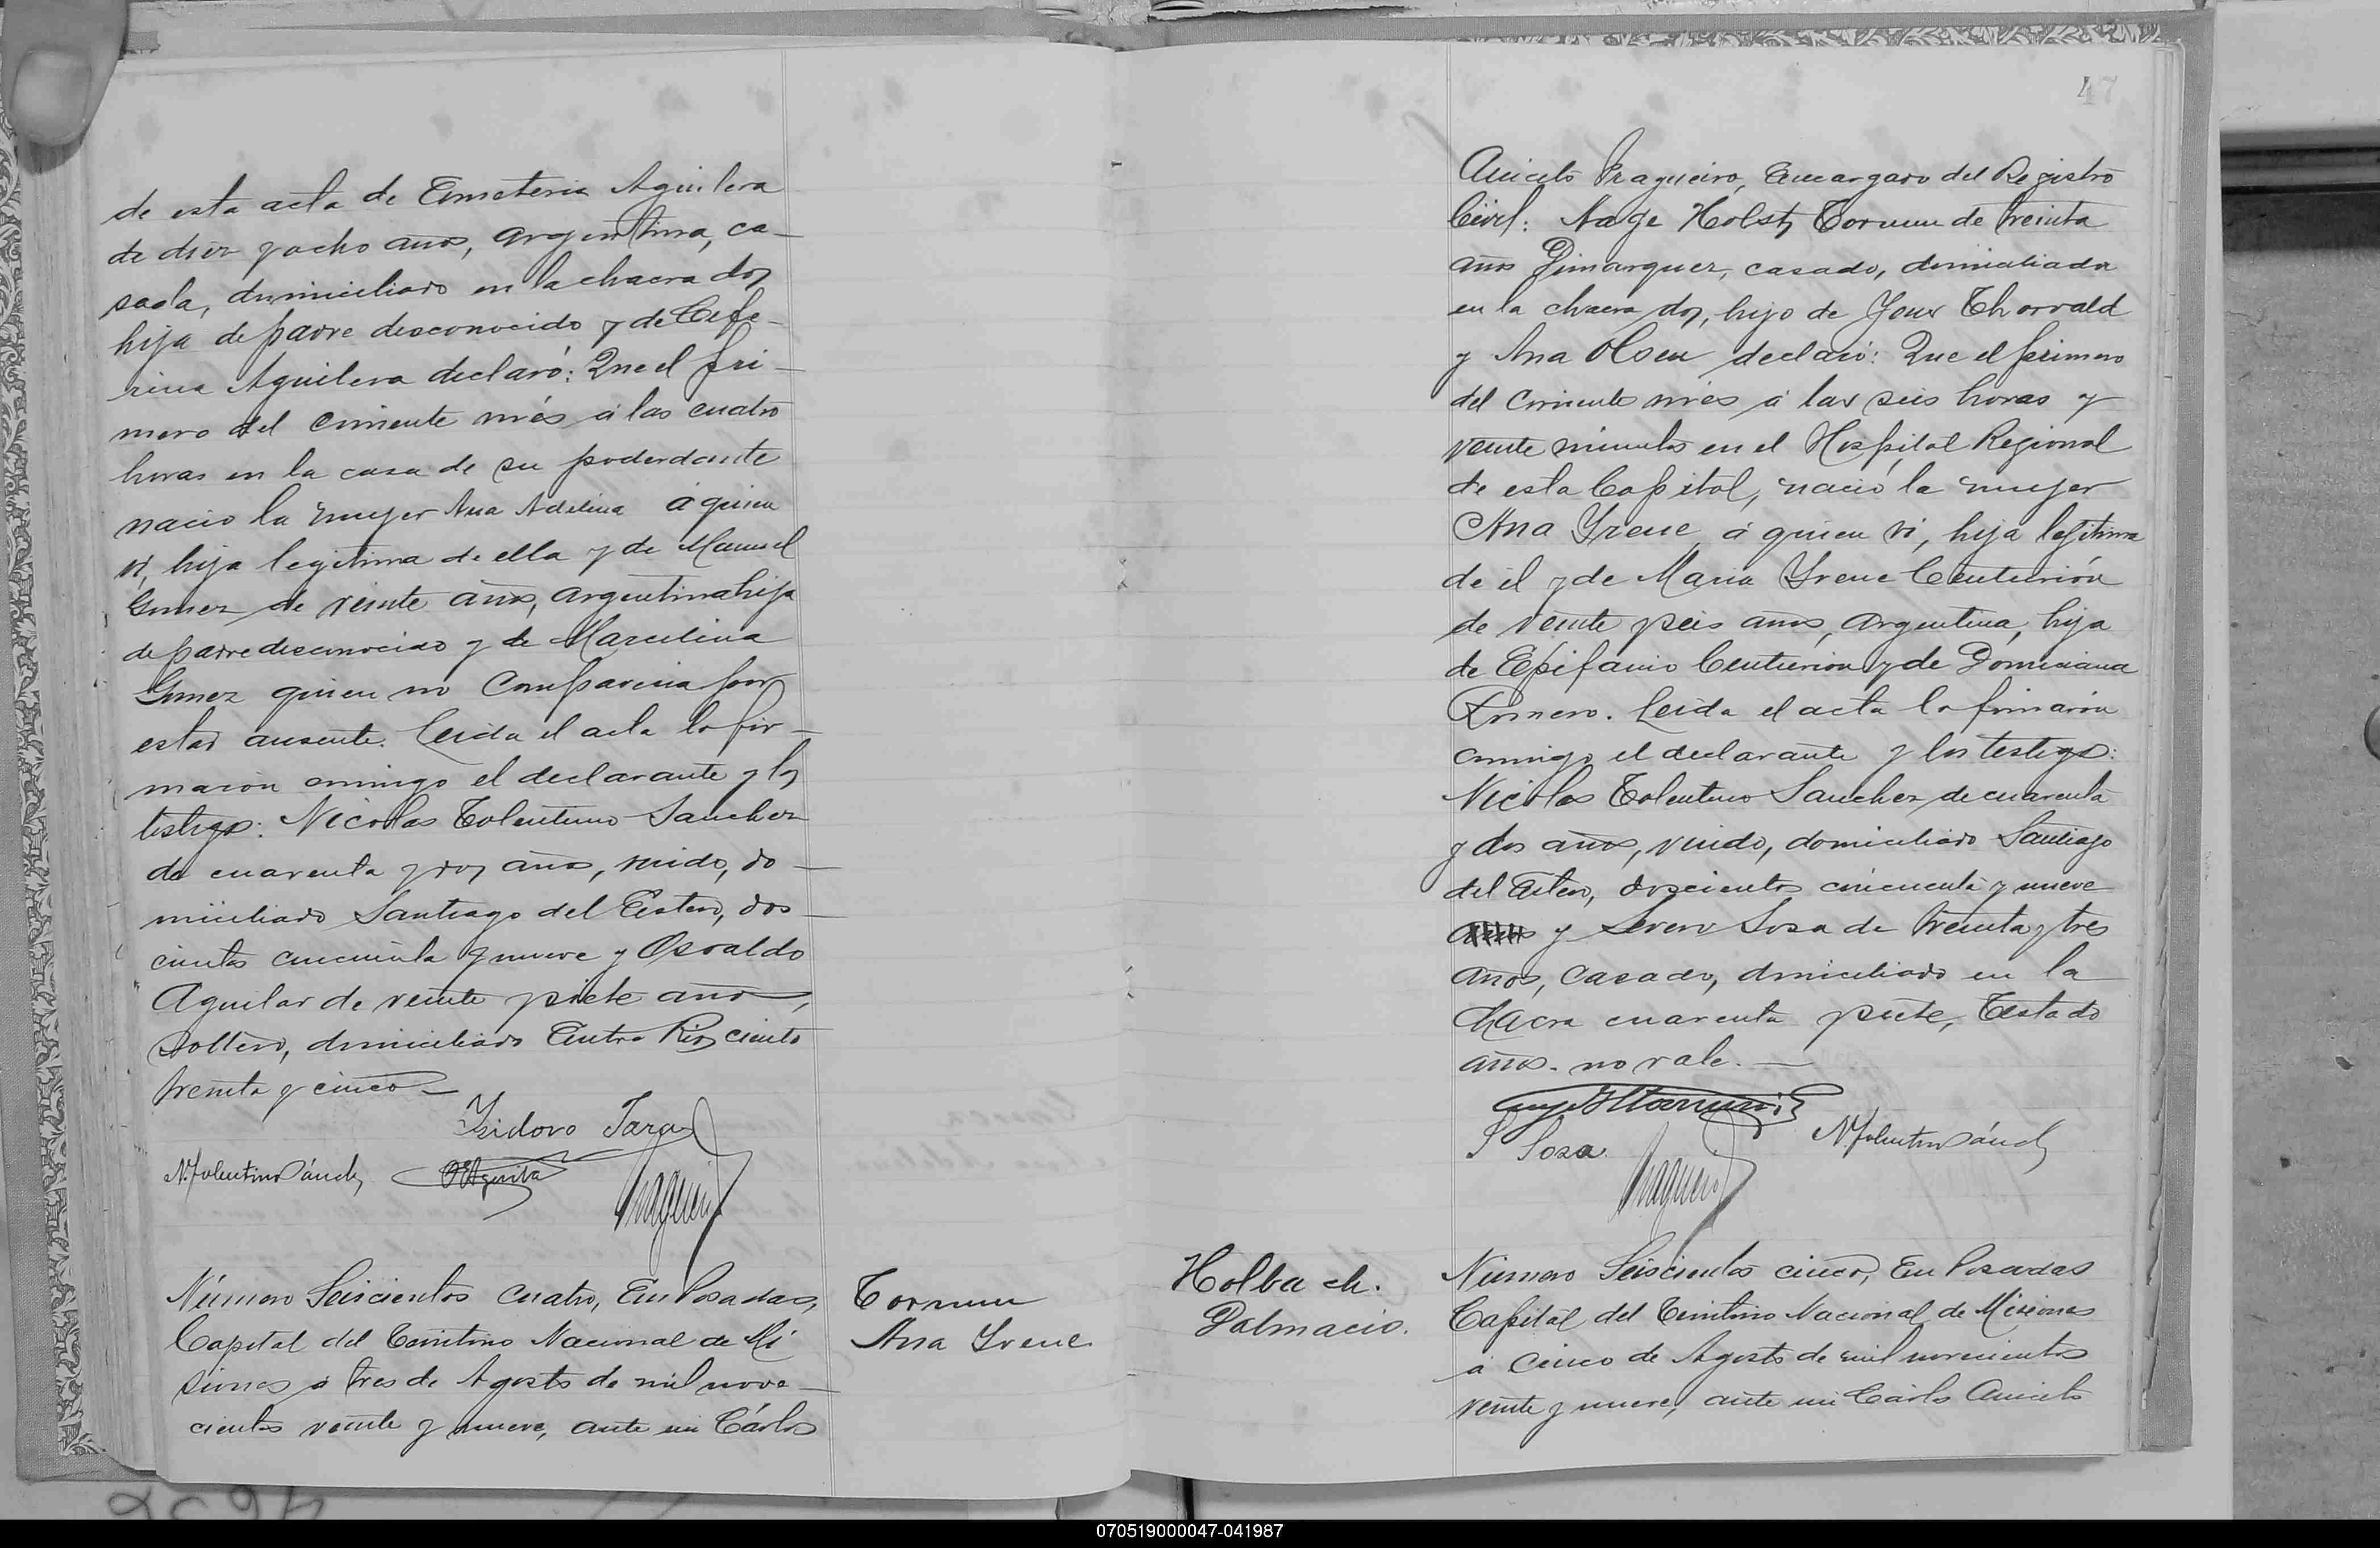 de esta acta de Emeteria Aguilera
de diez y ocho años, argentina, ca-
sada, domiciliado en la chacra dos
hija de padre desconocido y de Cefe-
rina Aguilera declaró: Que el pri-
mero del corriente més á las cuatro
horas en la casa de su poderdante
nació la mujer Ana Adelina á quien
ví, hija legitima de ella y de Manuel
Gomez de veinte años, argentina hija
de padre desconocido y de Marcelina
Gomez quien no comparecia por
estar ausente. Leida el acta la fir-
maron conmigo el declarante y los
testigos: Nicolas Tolentino Sanchez
de cuarenta y dos años, viudo, do-
miciliado Santiago del Estero, dos-
cientos cincuenta y nueve y Osvaldo
Aguilar de veinte y siete años,
soltero, domiciliado Entre Rios ciento
treinta y cinco-
Isidoro Jara
N. Tolentino Sánch
Fragueiro
Número Seiscientos cuatro, En Posadas,
Capital del Territorio Nacional de Mi
siones á tres de Agosto de mil nove-
cientos veinte y nueve, ante mi Cárlos
Tornum
Ana Yrene
47
Aniceto Fragueiro, Encargado del Registro
Civil: Aage Holst Tornum de treinta
años Dimarquez, casado, domiciliado
en la chacra dos, hijo de Jens Thorvald
y Ana Olsen declaró: Que el primero
del corriente més á las seis horas y
veinte minutos en el Hospital Regional
de esta Capital, nació la mujer
Ana Yrene á quien ví, hija legitima
de él y de Maria Yrene Centurión
de veinte y seis años, argentina, hija
de Epifanio Centurion y de Domiciana
Romero. Leida el acta la firmarón
conmigo el declarante y los testigos:
Nicolas Tolentino Sanchez de cuarenta
y dos años, viudo, domiciliado Santiago
del Estero, doscientos cincuenta y nueve
años y Severo Sosa de treinta y tres
años, casado, domiciliado en la
chacra cuarenta y siete, Testado
años. no vale.-
S Sosa.
N. Tolentino Sánch
Fragueiro
Holbach.
Dalmacio.
Número Seiscientos cinco, En Posadas
Capital del Territorio Nacional de Misiones
á cinco de Agosto de mil novecientos
veinte y nueve, ante mi Cárlos Aniceto
070519000047-041987